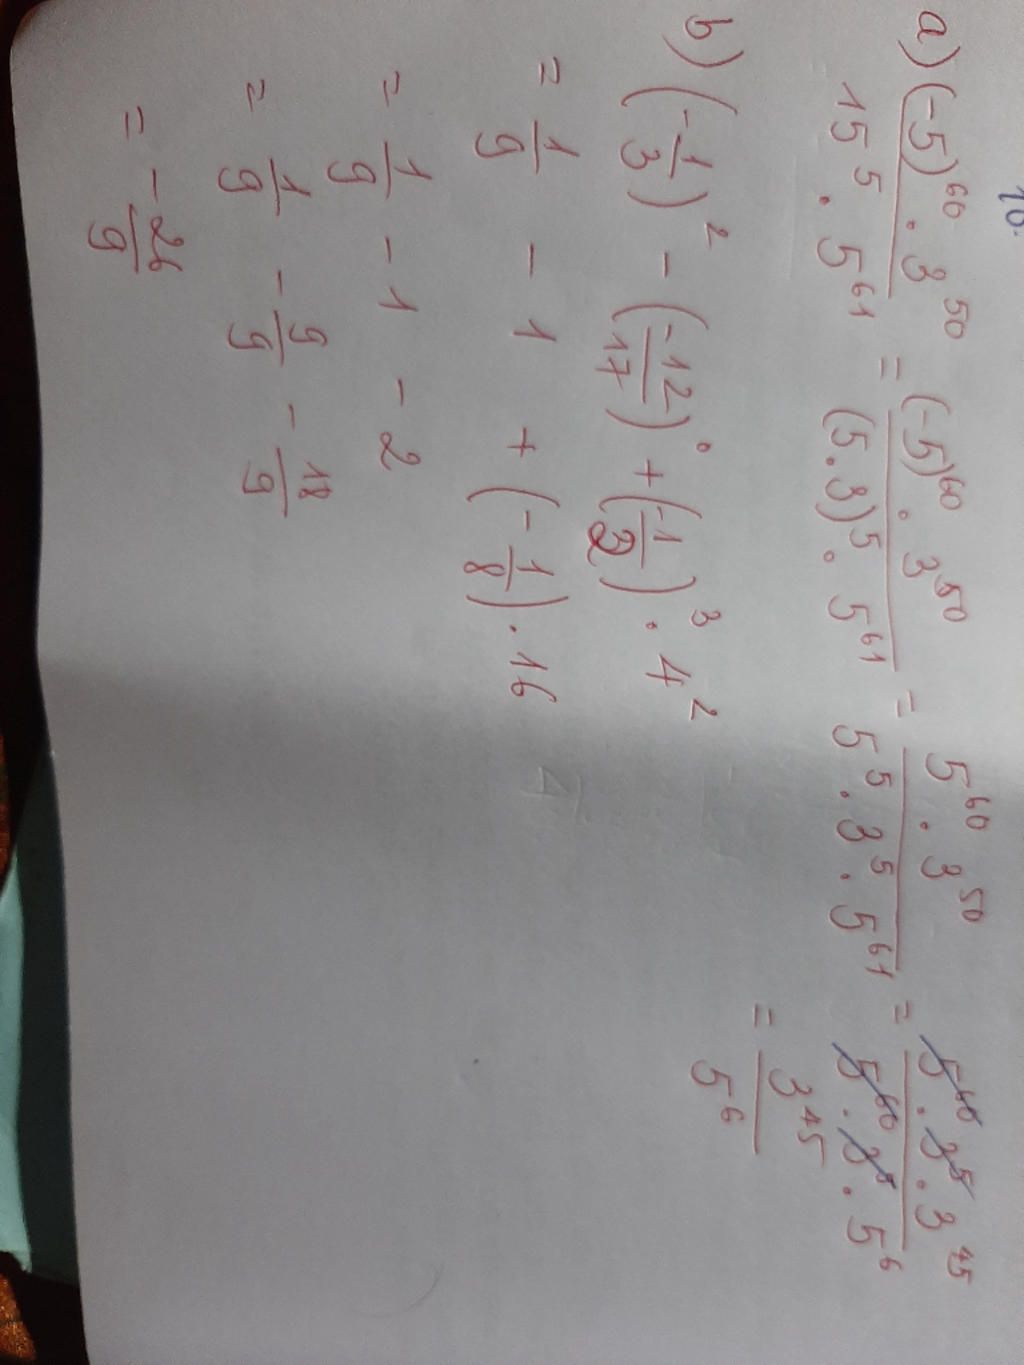 10.
a) (-5)^60 . 3^50 / 15^5 . 5^61 = (-5)^60 . 3^50 / (5.3)^5 . 5^61 = 5^60 . 3^50 / 5^5 . 3^5 . 5^61 = 5^60 . 3^5 . 3^45 / 5^60 . 3^5 . 5^6
= 3^45 / 5^6
b) (-1/3)^2 - (-12/17)^0 + (-1/2)^3 . 4^2
= 1/9 - 1 + (-1/8) . 16
= 1/9 - 1 - 2
= 1/9 - 9/9 - 18/9
= -26/9